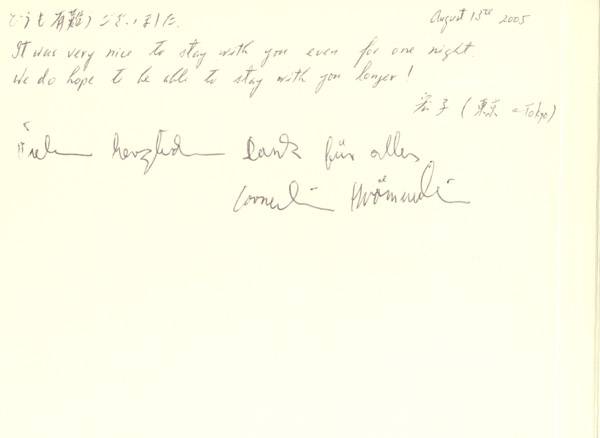 どうも有難うございました. August 13th 2005
It was very nice to stay with you even for one night.
We do hope to be able to stay with you longer!
宏子 (東京 =Tokyo)
Vielen herzlichen Dank für alles.